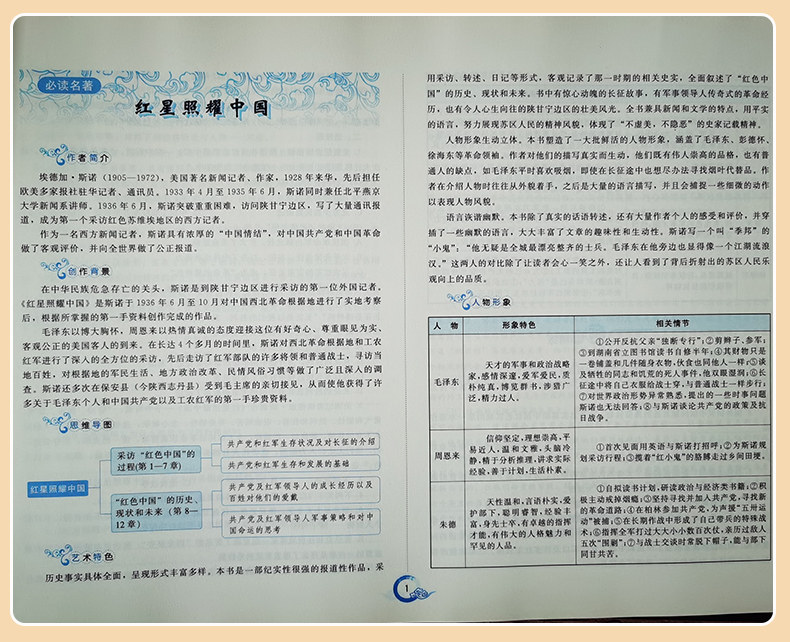 必读名著
红星照耀中国
作者简介
埃德加·斯诺（1905—1972），美国著名新闻记者、作家，1928年来华，先后担任
欧美多家报社驻华记者、通讯员。1933年4月至1935年6月，斯诺同时兼任北平燕京
大学新闻系讲师。1936年6月，斯诺突破重重困难，访问陕甘宁边区，写了大量通讯报
道，成为第一个采访红色苏维埃地区的西方记者。
作为一名西方新闻记者，斯诺具有浓厚的“中国情结”，对中国共产党和中国革命
做了客观评价，并向全世界做了公正报道。
创作背景
在中华民族危急存亡的关头，斯诺是到陕甘宁边区进行采访的第一位外国记者。
《红星照耀中国》是斯诺于1936年6月至10月对中国西北革命根据地进行了实地考察
后，根据所掌握的第一手资料创作完成的作品。
毛泽东以博大胸怀，周恩来以热情真诚的态度迎接这位有好奇心、尊重眼见为实、
客观公正的美国客人的到来。在长达4个多月的时间里，斯诺对西北革命根据地和工农
红军进行了深入的全方位的采访，先后走访了红军部队的许多将领和普通战士，寻访当
地百姓，对根据地的军民生活、地方政治改革、民情风俗习惯等做了广泛且深入的调
查。斯诺还多次在保安县（今陕西志丹县）受到毛主席的亲切接见，从而使他获得了许
多关于毛泽东个人和中国共产党以及工农红军的第一手珍贵资料。
思维导图
红星照耀中国
采访“红色中国”的
过程(第1—7章)
共产党和红军生存状况及对长征的介绍
共产党和红军生存和发展的基础
“红色中国”的历史、
现状和未来（第8—
12章）
共产党及红军领导人的成长经历以及
百姓对他们的爱戴
共产党及红军领导人军事策略和对中
国命运的思考
艺术特色
历史事实具体全面，呈现形式丰富多样。本书是一部纪实性很强的报道性作品，采
用采访、转述、日记等形式，客观记录了那一时期的相关史实，全面叙述了“红色中
国”的历史、现状和未来。书中有惊心动魄的长征故事，有军事领导人传奇式的革命经
历，也有令人心生向往的陕甘宁边区的壮美风光。全书兼具新闻和文学的特点，用平实
的语言，努力展现苏区人民的精神风貌，体现了“不虚美，不隐恶”的史家记载精神。
人物形象生动立体。本书塑造了一大批鲜活的人物形象，涵盖了毛泽东、彭德怀、
徐海东等革命领袖。作者对他们的描写真实而生动，他们既有伟人崇高的品格，也有普
通人的缺点，如毛泽东平时喜欢吸烟，即使在长征途中也想尽办法寻找烟叶代替品。作
者在介绍人物时往往从外貌着手，之后是大量的语言描写，并且会捕捉一些细微的动作
以表现人物风貌。
语言诙谐幽默。本书除了真实的话语转述，还有大量作者个人的感受和评价，并穿
插了一些幽默的语言，大大丰富了文章的趣味性和生动性。斯诺写一个叫“季邦”的
“小鬼”：“他无疑是全城最漂亮整齐的士兵。毛泽东在他旁边也显得像一个江湖流浪
汉。”这两人的对比除了让读者会心一笑之外，还让人看到了背后折射出的苏区人民乐
观向上的品质。
人物形象
人 物 形象特色 相关情节
毛泽东
天才的军事和政治战略
家，感情深邃，爱军爱民，质
朴纯真，博览群书，涉猎广
泛，精力过人。
①公开反抗父亲“独断专行”；②剪辫子，参军；
③到湖南省立图书馆读书自修半年；④其财物只是
一卷铺盖和几件随身衣物，伙食也同他人一样；⑤谈
及牺牲的同志和饥荒的死人事件，他双眼湿润；⑥长
征途中将自己衣服给战士穿，与普通战士一样步行；
⑦对世界政治形势异常熟悉，提出的一些时事问题
斯诺也无法回答；⑧与斯诺谈论共产党的政策及抗
日战争。
周恩来
信仰坚定，理想崇高，平
易近人，温和文雅，头脑冷
静，精于分析推理，讲求实际
经验，善于计划，生活朴素。
①首次见面用英语与斯诺打招呼；②为斯诺规
划采访行程；③揽着“红小鬼”的胳膊走过乡间田埂。
朱德
天性温和，言语朴实，爱
护部下，聪明睿智，经验丰
富，身先士卒，有卓越的指挥
才能，有伟大的人格魅力和
罕见的人品。
①自拟读书计划，研读政治与经济类书籍；②积
极主动戒掉烟瘾；③坚持寻找并加入共产党，寻找新
的革命道路；④在柏林参加共产党，为声援“五卅运
动”被捕；⑤在长期作战中形成了自己带兵的特殊战
术；⑥指挥全军打过大大小小数百次仗，亲历过敌人
五次“围剿”；⑦与战士交谈时常脱下帽子，能与部下
同甘共苦。
1